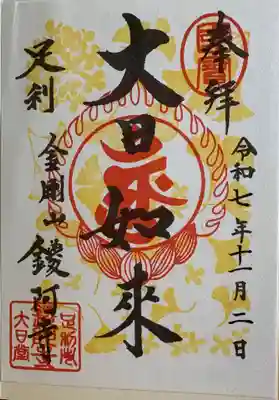 奉拝
令和七年十一月二日
大日如来
足利
金剛山 鑁阿寺
大日堂